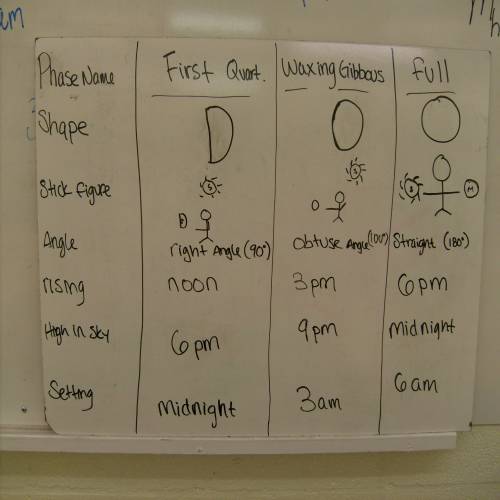 am
Phase Name First Quart. Waxing Gibbous Full
Shape
Stick Figure S S S M
Angle right Angle (90°) Obtuse Angle (100°) Straight (180°)
rising noon 3pm 6pm
High in Sky 6pm 9pm Midnight
Setting Midnight 3am 6am